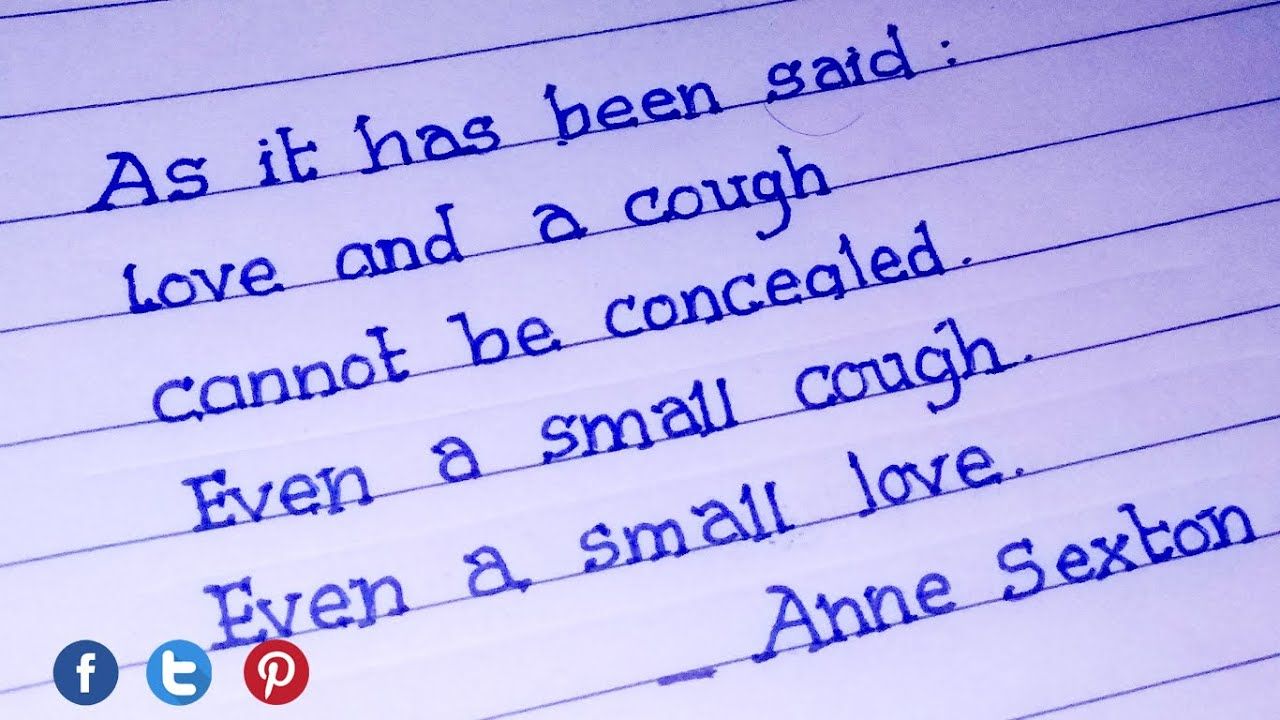 As it has been said :
love and a cough
cannot be concealed.
Even a small cough.
Even a small love.
_ Anne Sexton